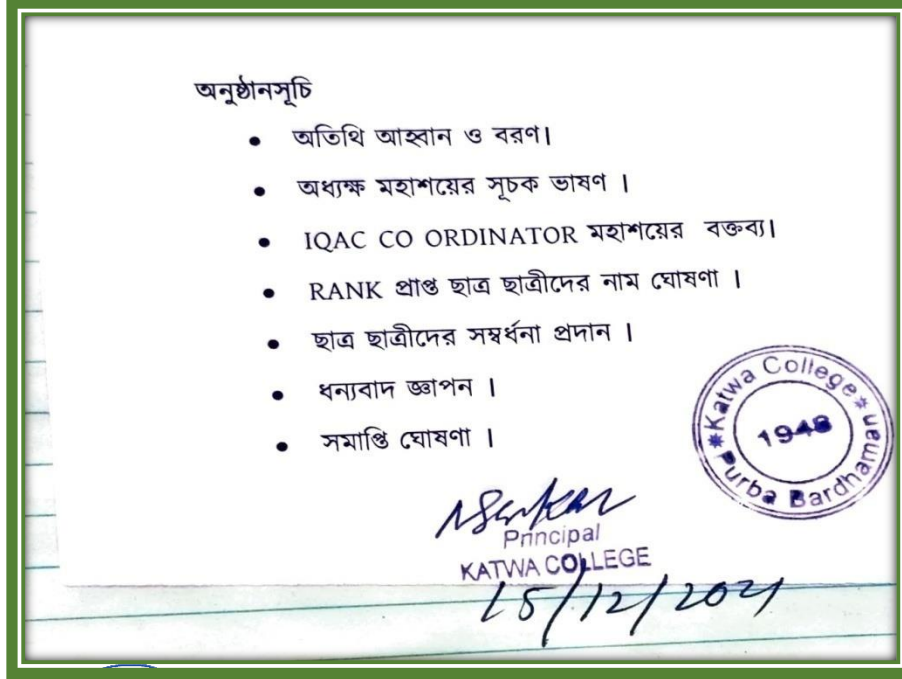 অনুষ্ঠানসূচি
• অতিথি আহ্বান ও বরণ।
• অধ্যক্ষ মহাশয়ের সূচক ভাষণ ।
• IQAC CO ORDINATOR মহাশয়ের বক্তব্য।
• RANK প্রাপ্ত ছাত্র ছাত্রীদের নাম ঘোষণা ।
• ছাত্র ছাত্রীদের সম্বর্ধনা প্রদান ।
• ধন্যবাদ জ্ঞাপন ।
• সমাপ্তি ঘোষণা ।
*Katwa College*
1948
Purba Bardhaman
NSarkar
Principal
KATWA COLLEGE
15/12/2021